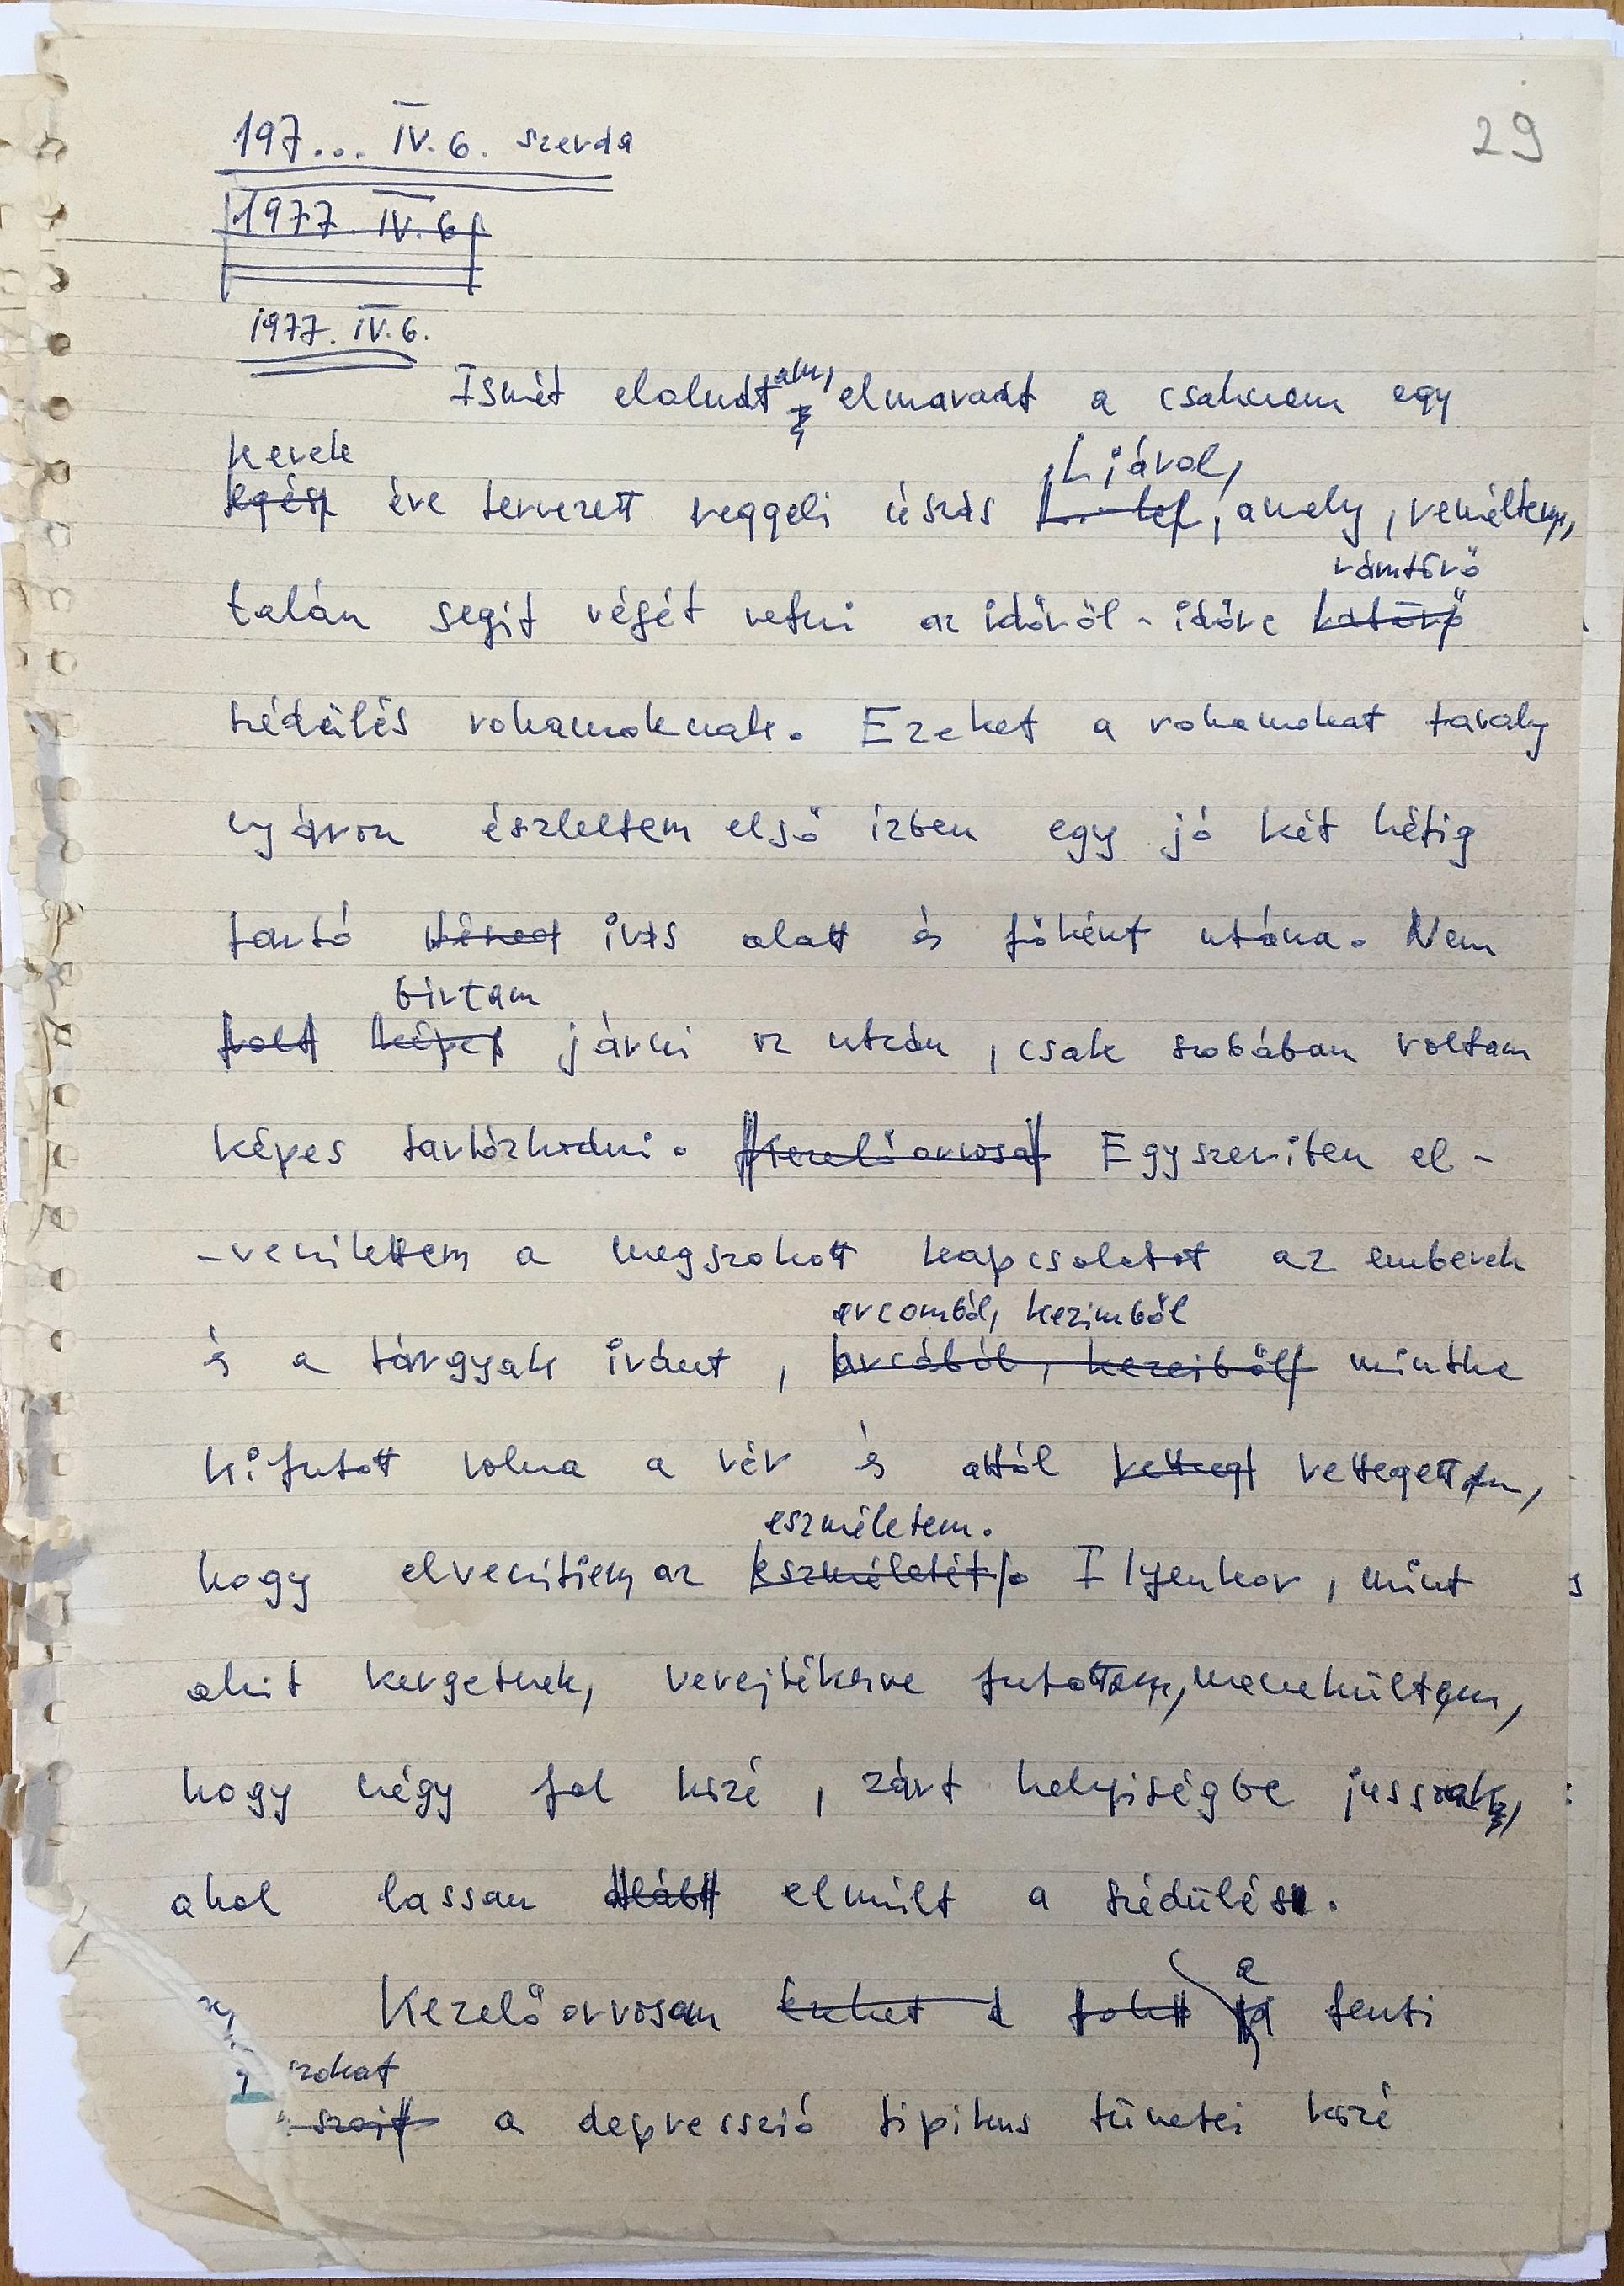 29
197... IV. 6. szerda
1977. IV. 6
1977. IV. 6.
Ismét elaludtam, elmaradt a csaknem egy
kerek L-jával,
egész éve tervezett reggeli úszás L.-lel, amely, reméltem,
rámtörő
talán segít végét vetni az időről-időre rátörő
szédülés rohamoknak. Ezeket a rohamokat tavaly
nyáron észleltem első ízben egy jó két hétig
tartó ivás alatt és főként utána. Nem
birtam
volt képes járni az utcán, csak szobában voltam
képes tartózkodni. Kezelőorvosa Egyszeriben el-
-veszítettem a megszokott kapcsolatot az emberek
arcomból, kezimből
és a tárgyak iránt, arcából, kezeiből mintha
kifutott volna a vér és attól retteget rettegettem,
eszméletem.
hogy elveszítiem az eszméletét. Ilyenkor, mint
akit kergetnek, verejtékezve futottam, menekültem,
hogy négy fal közé, zárt helyiségbe jussak,
ahol lassan elmúlt a szédülés.
a
Kezelőorvosom ezeket a fenti
szokat
a depresszió tipikus tünetei közé